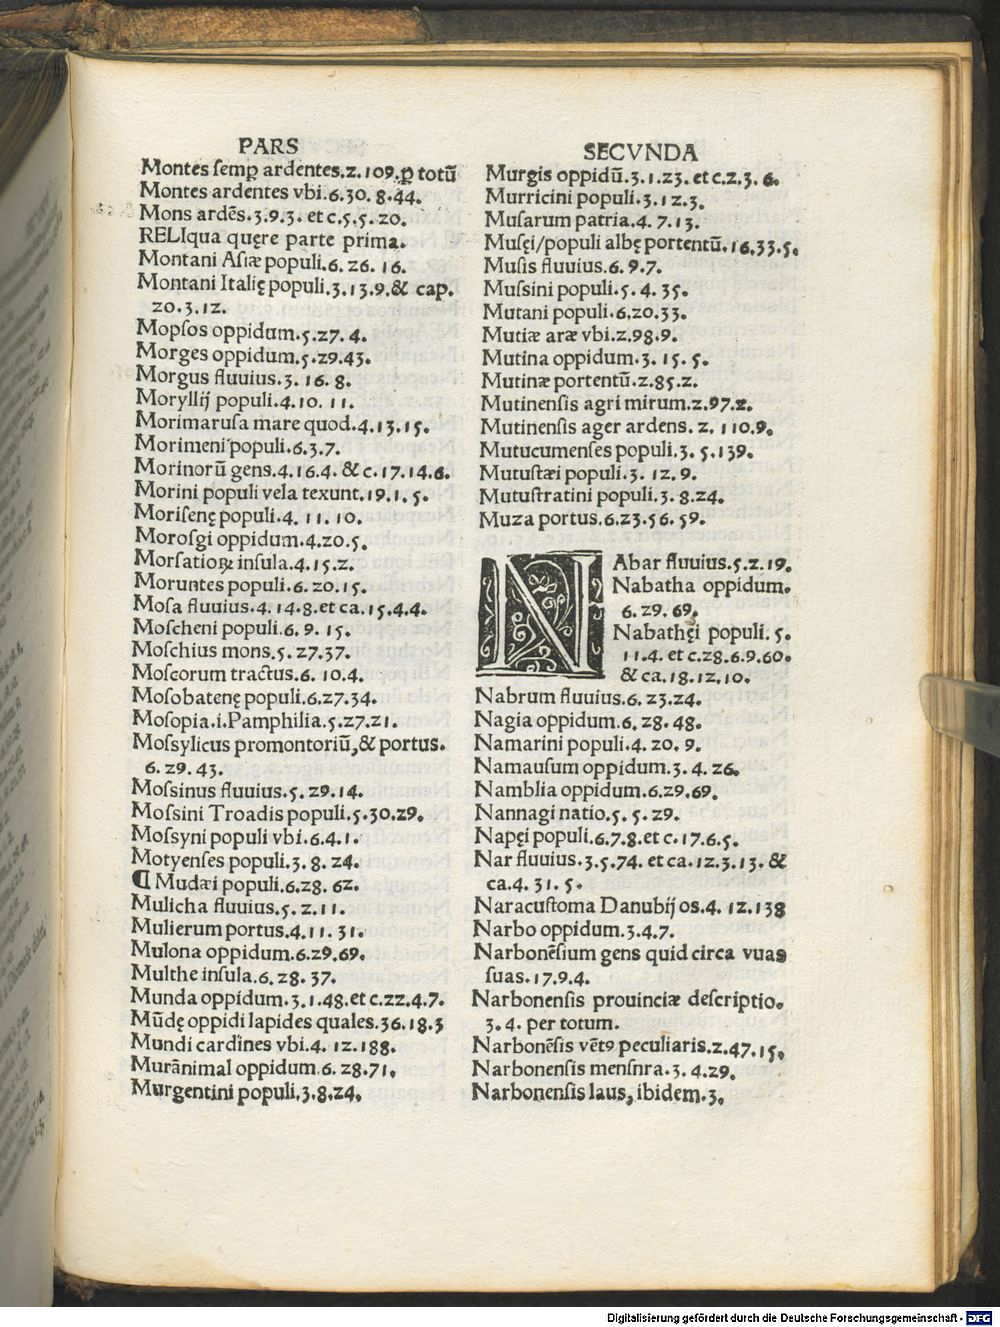 PARS
Montes semꝑ ardentes.2.109.ꝑ totũ
Montes ardentes vbi.6.30.8.44.
Mons ardẽs.3.9.3. et c.5.5.20.
RELIqua quęre parte prima.
Montani Asiæ populi.6.26.16.
Montani Italię populi.3.13.9.& cap.
20.3.12.
Mopsos oppidum.5.27.4.
Morges oppidum.5.29.43.
Morgus fluuius.3.16.8.
Moryllij populi.4.10.11.
Morimarusa mare quod.4.13.15.
Morimeni populi.6.3.7.
Morinorũ gens.4.16.4. & c.17.14.6.
Morini populi vela texunt.19.1.5.
Morisenę populi.4.11.10.
Morosgi oppidum.4.20.5.
Morsatioꝝ insula.4.15.2.
Moruntes populi.6.20.15.
Mosa fluuius.4.14.8.et ca.15.4.4.
Moscheni populi.6.9.15.
Moschius mons.5.27.37.
Moscorum tractus.6.10.4.
Mosobatenę populi.6.27.34.
Mosopia.i.Pamphilia.5.27.21.
Mossylicus promontoriũ,& portus.
6.29.43.
Mossinus fluuius.5.29.14.
Mossini Troadis populi.5.30.29.
Mossyni populi vbi.6.4.1.
Motyenses populi.3.8.24.
¶ Mudæi populi.6.28.62.
Mulicha fluuius.5.2.11.
Mulierum portus.4.11.31.
Mulona oppidum.6.29.69.
Multhe insula.6.28.37.
Munda oppidum.3.1.48.et c.22.4.7.
Mũdę oppidi lapides quales.36.18.3
Mundi cardines vbi.4.12.188.
Murãnimal oppidum.6.28.71.
Murgentini populi.3.8.24.
SECVNDA
Murgis oppidũ.3.1.23. et c.2.3.6.
Murricini populi.3.12.3.
Musarum patria.4.7.13.
Musęi/populi albę portentũ.16.33.5.
Musis fluuius.6.9.7.
Mussini populi.5.4.35.
Mutani populi.6.20.33.
Mutiæ aræ vbi.2.98.9.
Mutina oppidum.3.15.5.
Mutinæ portentũ.2.85.2.
Mutinensis agri mirum.2.97.2.
Mutinensis ager ardens.2.110.9.
Mutucumenses populi.3.5.139.
Mutustæi populi.3.12.9.
Mutustratini populi.3.8.24.
Muza portus.6.23.56.59.
NAbar fluuius.5.2.19.
Nabatha oppidum.
6.29.69.
Nabathęi populi.5.
11.4. et c.28.6.9.60.
& ca.18.12.10.
Nabrum fluuius.6.23.24.
Nagia oppidum.6.28.48.
Namarini populi.4.20.9.
Namausum oppidum.3.4.26.
Namblia oppidum.6.29.69.
Nannagi natio.5.5.29.
Napęi populi.6.7.8.et c.17.6.5.
Nar fluuius.3.5.74. et ca.12.3.13. &
ca.4.31.5.
Naracustoma Danubij os.4.12.138
Narbo oppidum.3.4.7.
Narbonẽsium gens quid circa vuas
suas.17.9.4.
Narbonensis prouinciæ descriptio.
3.4. per totum.
Narbonẽsis vẽtꝰ peculiaris.2.47.15.
Narbonensis mensnra.3.4.29.
Narbonensis laus, ibidem.3.
Digitalisierung gefördert durch die Deutsche Forschungsgemeinschaft - DFG